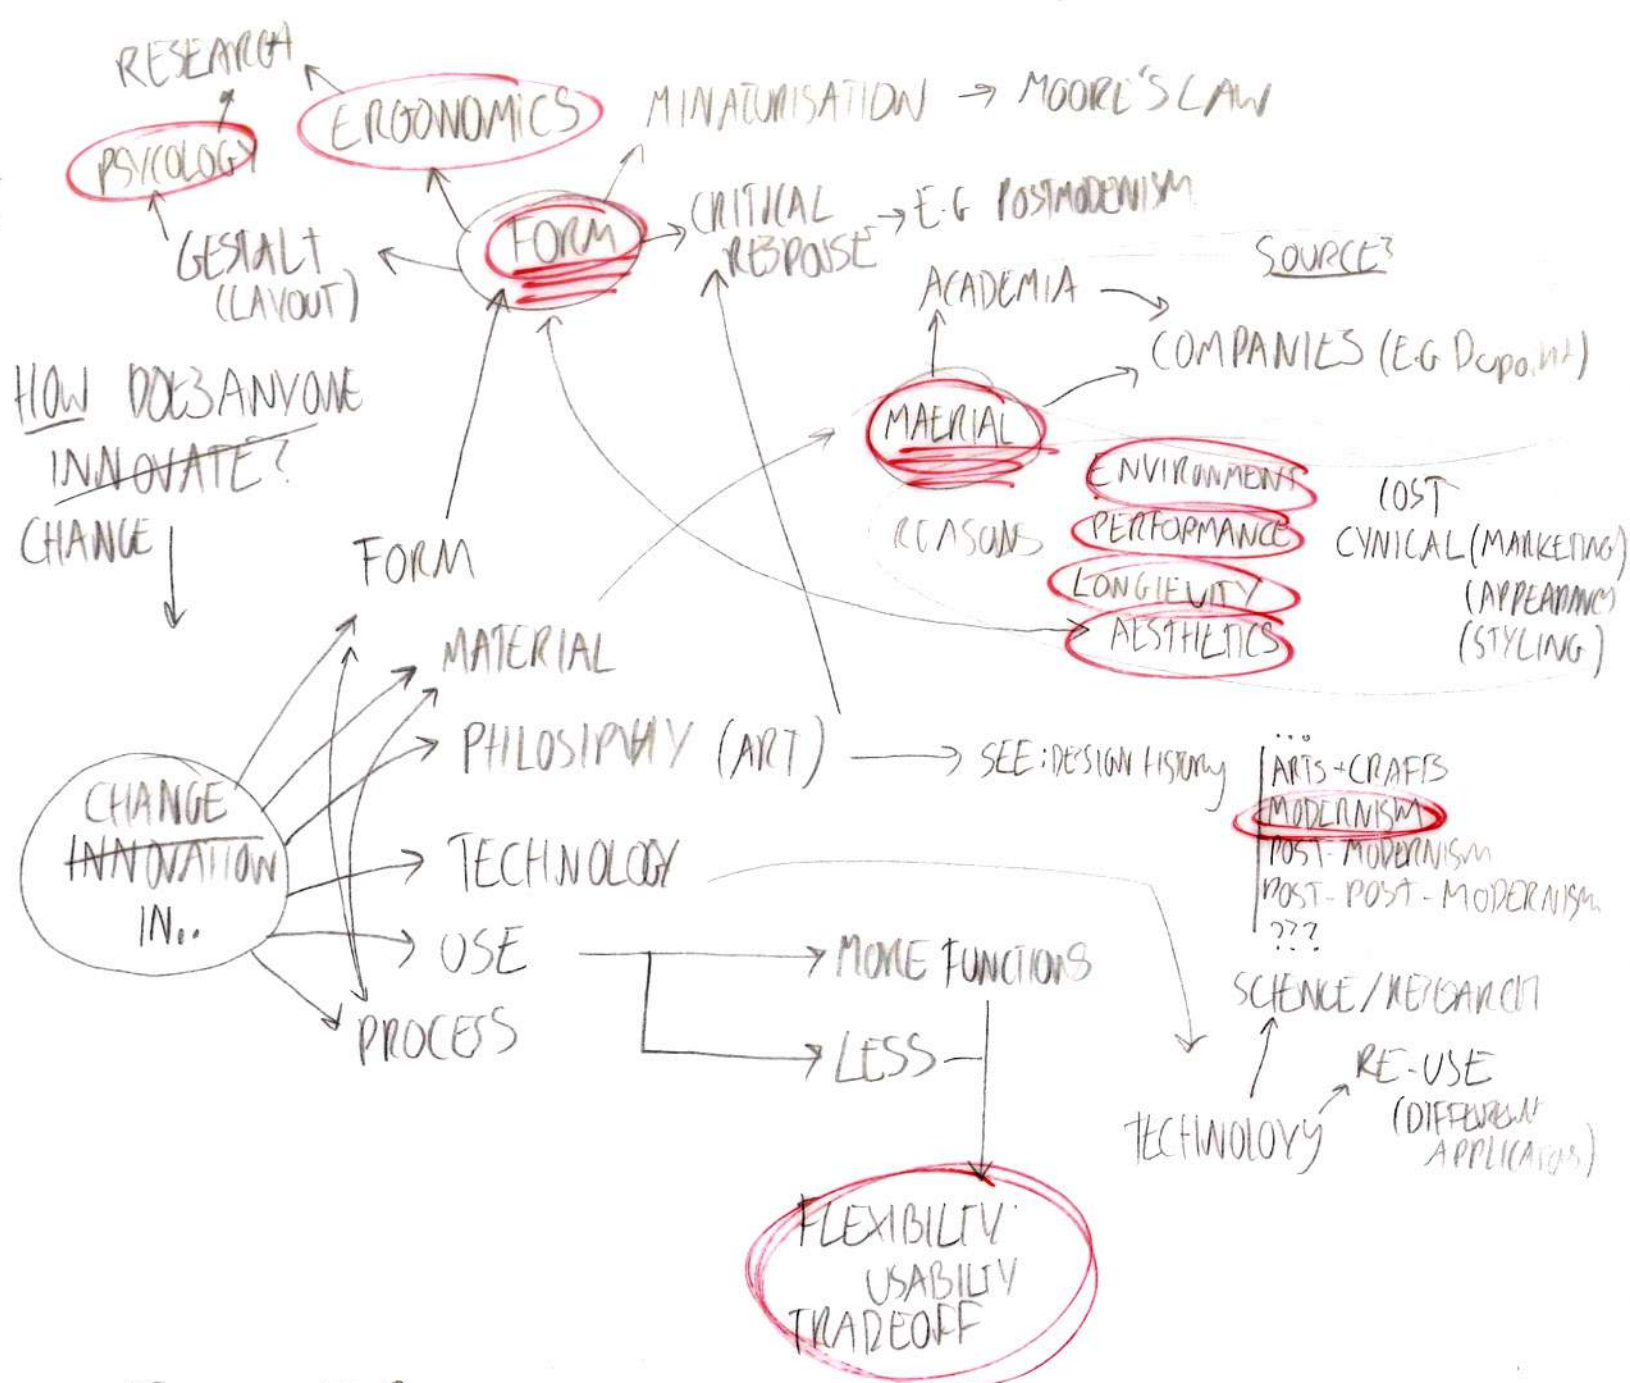 RESEARCH
ERGONOMICS
MINATURISATION → MOORE'S LAW
PSYCOLOGY
FORM
CRITICAL
RESPONSE
→ E.G POSTMODERNISM
GESTALT
(LAYOUT)
SOURCE?
ACADEMIA
COMPANIES (E.G Dupoint)
HOW DOES ANYONE
INNOVATE?
CHANGE
MAERIAL
REASONS
ENVIRONMENT
PERFORMANCE
LONGIEVITY
AESTHETICS
COST
CYNICAL (MARKETING)
(APPEARANCE)
(STYLING)
FORM
MATERIAL
PHILOSIPHY (ART)
SEE: DESIGN HISTORY
...
ARTS + CRAFTS
MODERNISM
POST-MODERNISM
POST-POST-MODERNISM
???
CHANGE
INNOVATION
IN..
TECHNOLOGY
USE
PROCESS
MORE FUNCTIONS
LESS
SCIENCE/RESEARCH
RE-USE
(DIFFERENT
TECHNOLOGY
FLEXIBILITY
USABILITY
TRADEOFF